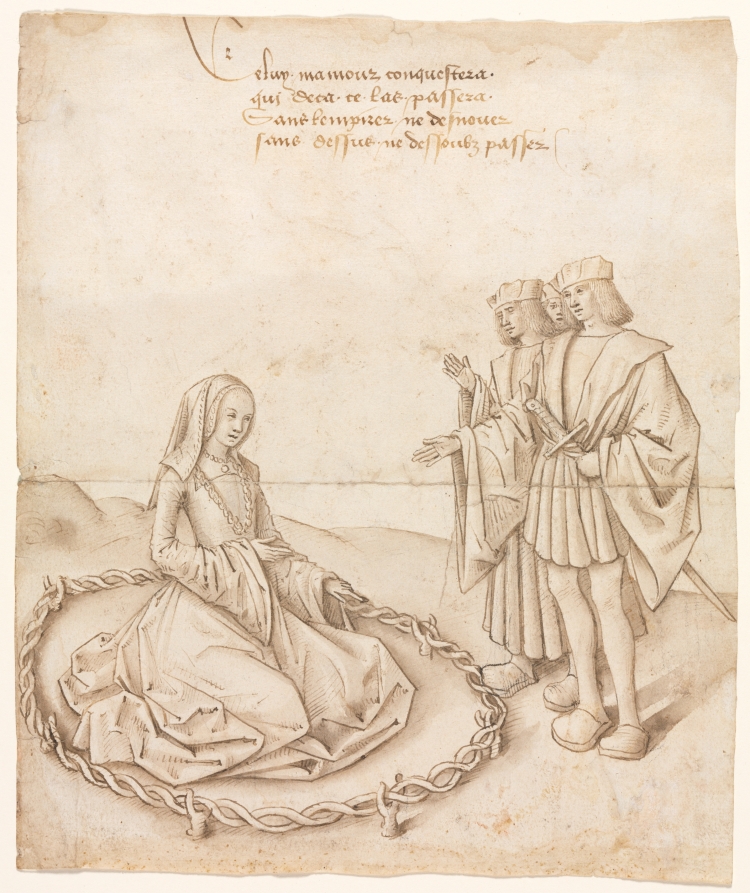 Celuy mamour conquestera.
qui deca ce las passera.
Sans lempirer ne desnouer
sans dessus ne dessoubz passer